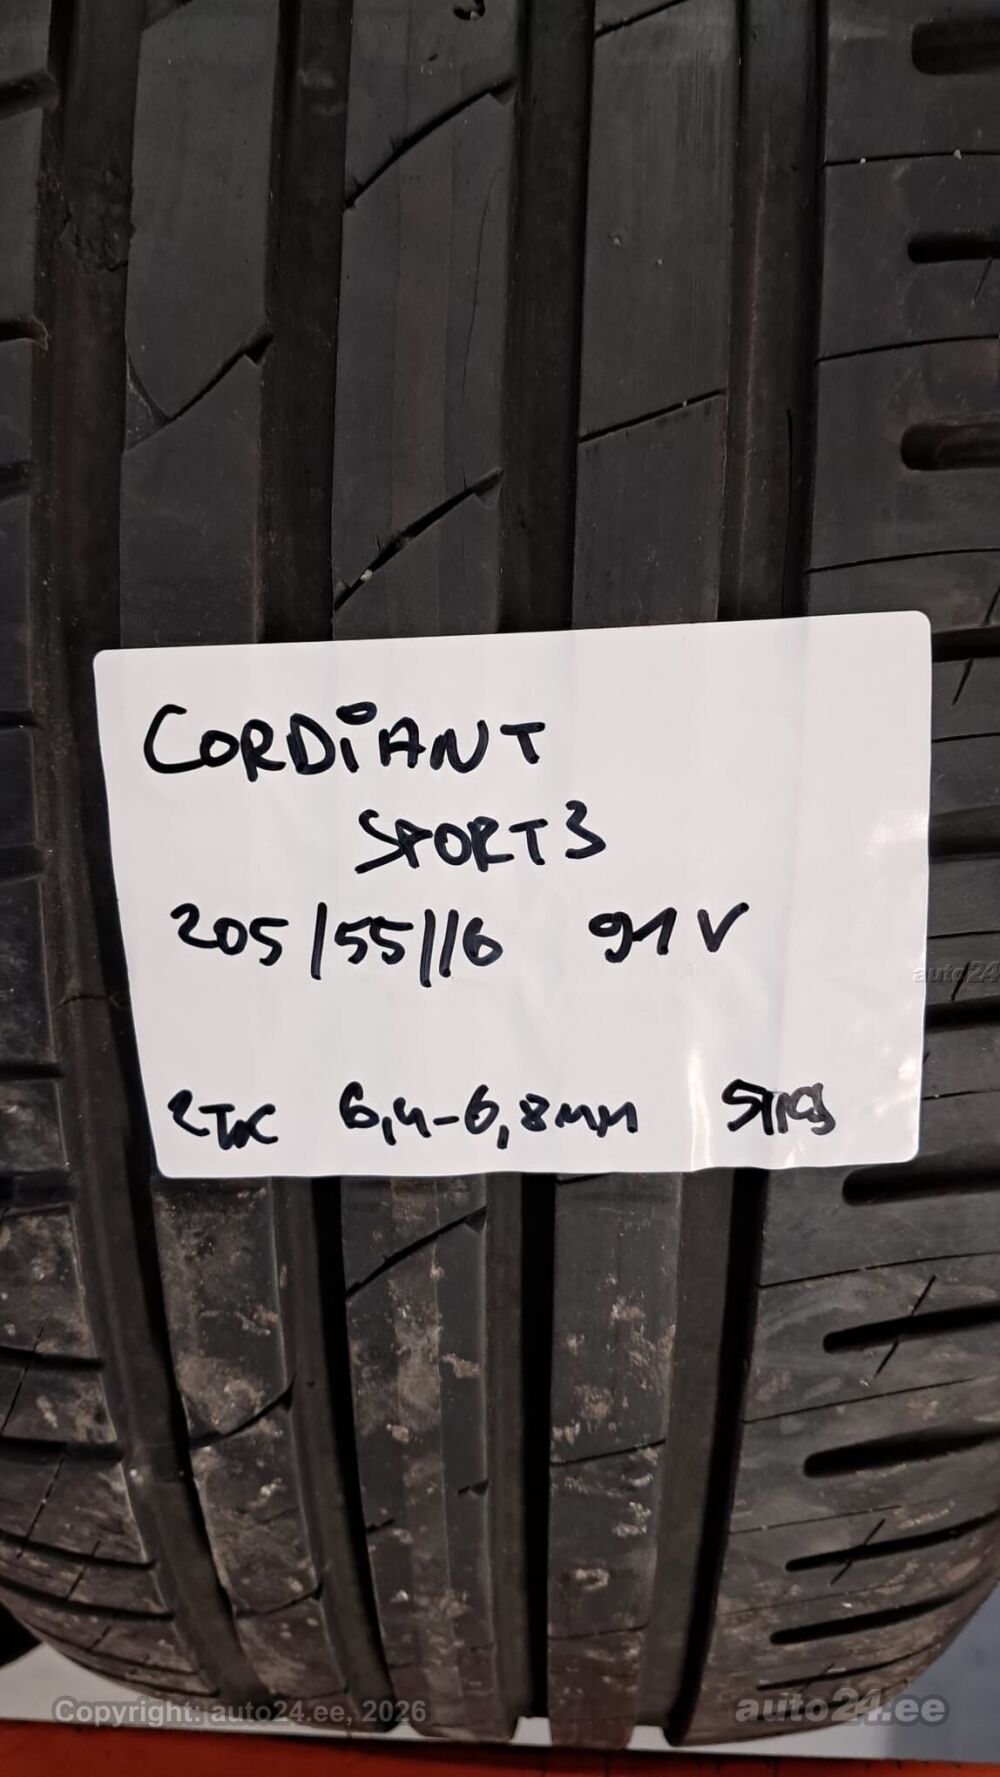 CORDiANT
SPORT3
205/55/16 91V
auto24
2TK 6,4-6,8mm
Copyright: auto24.ee, 2026
auto24.ee